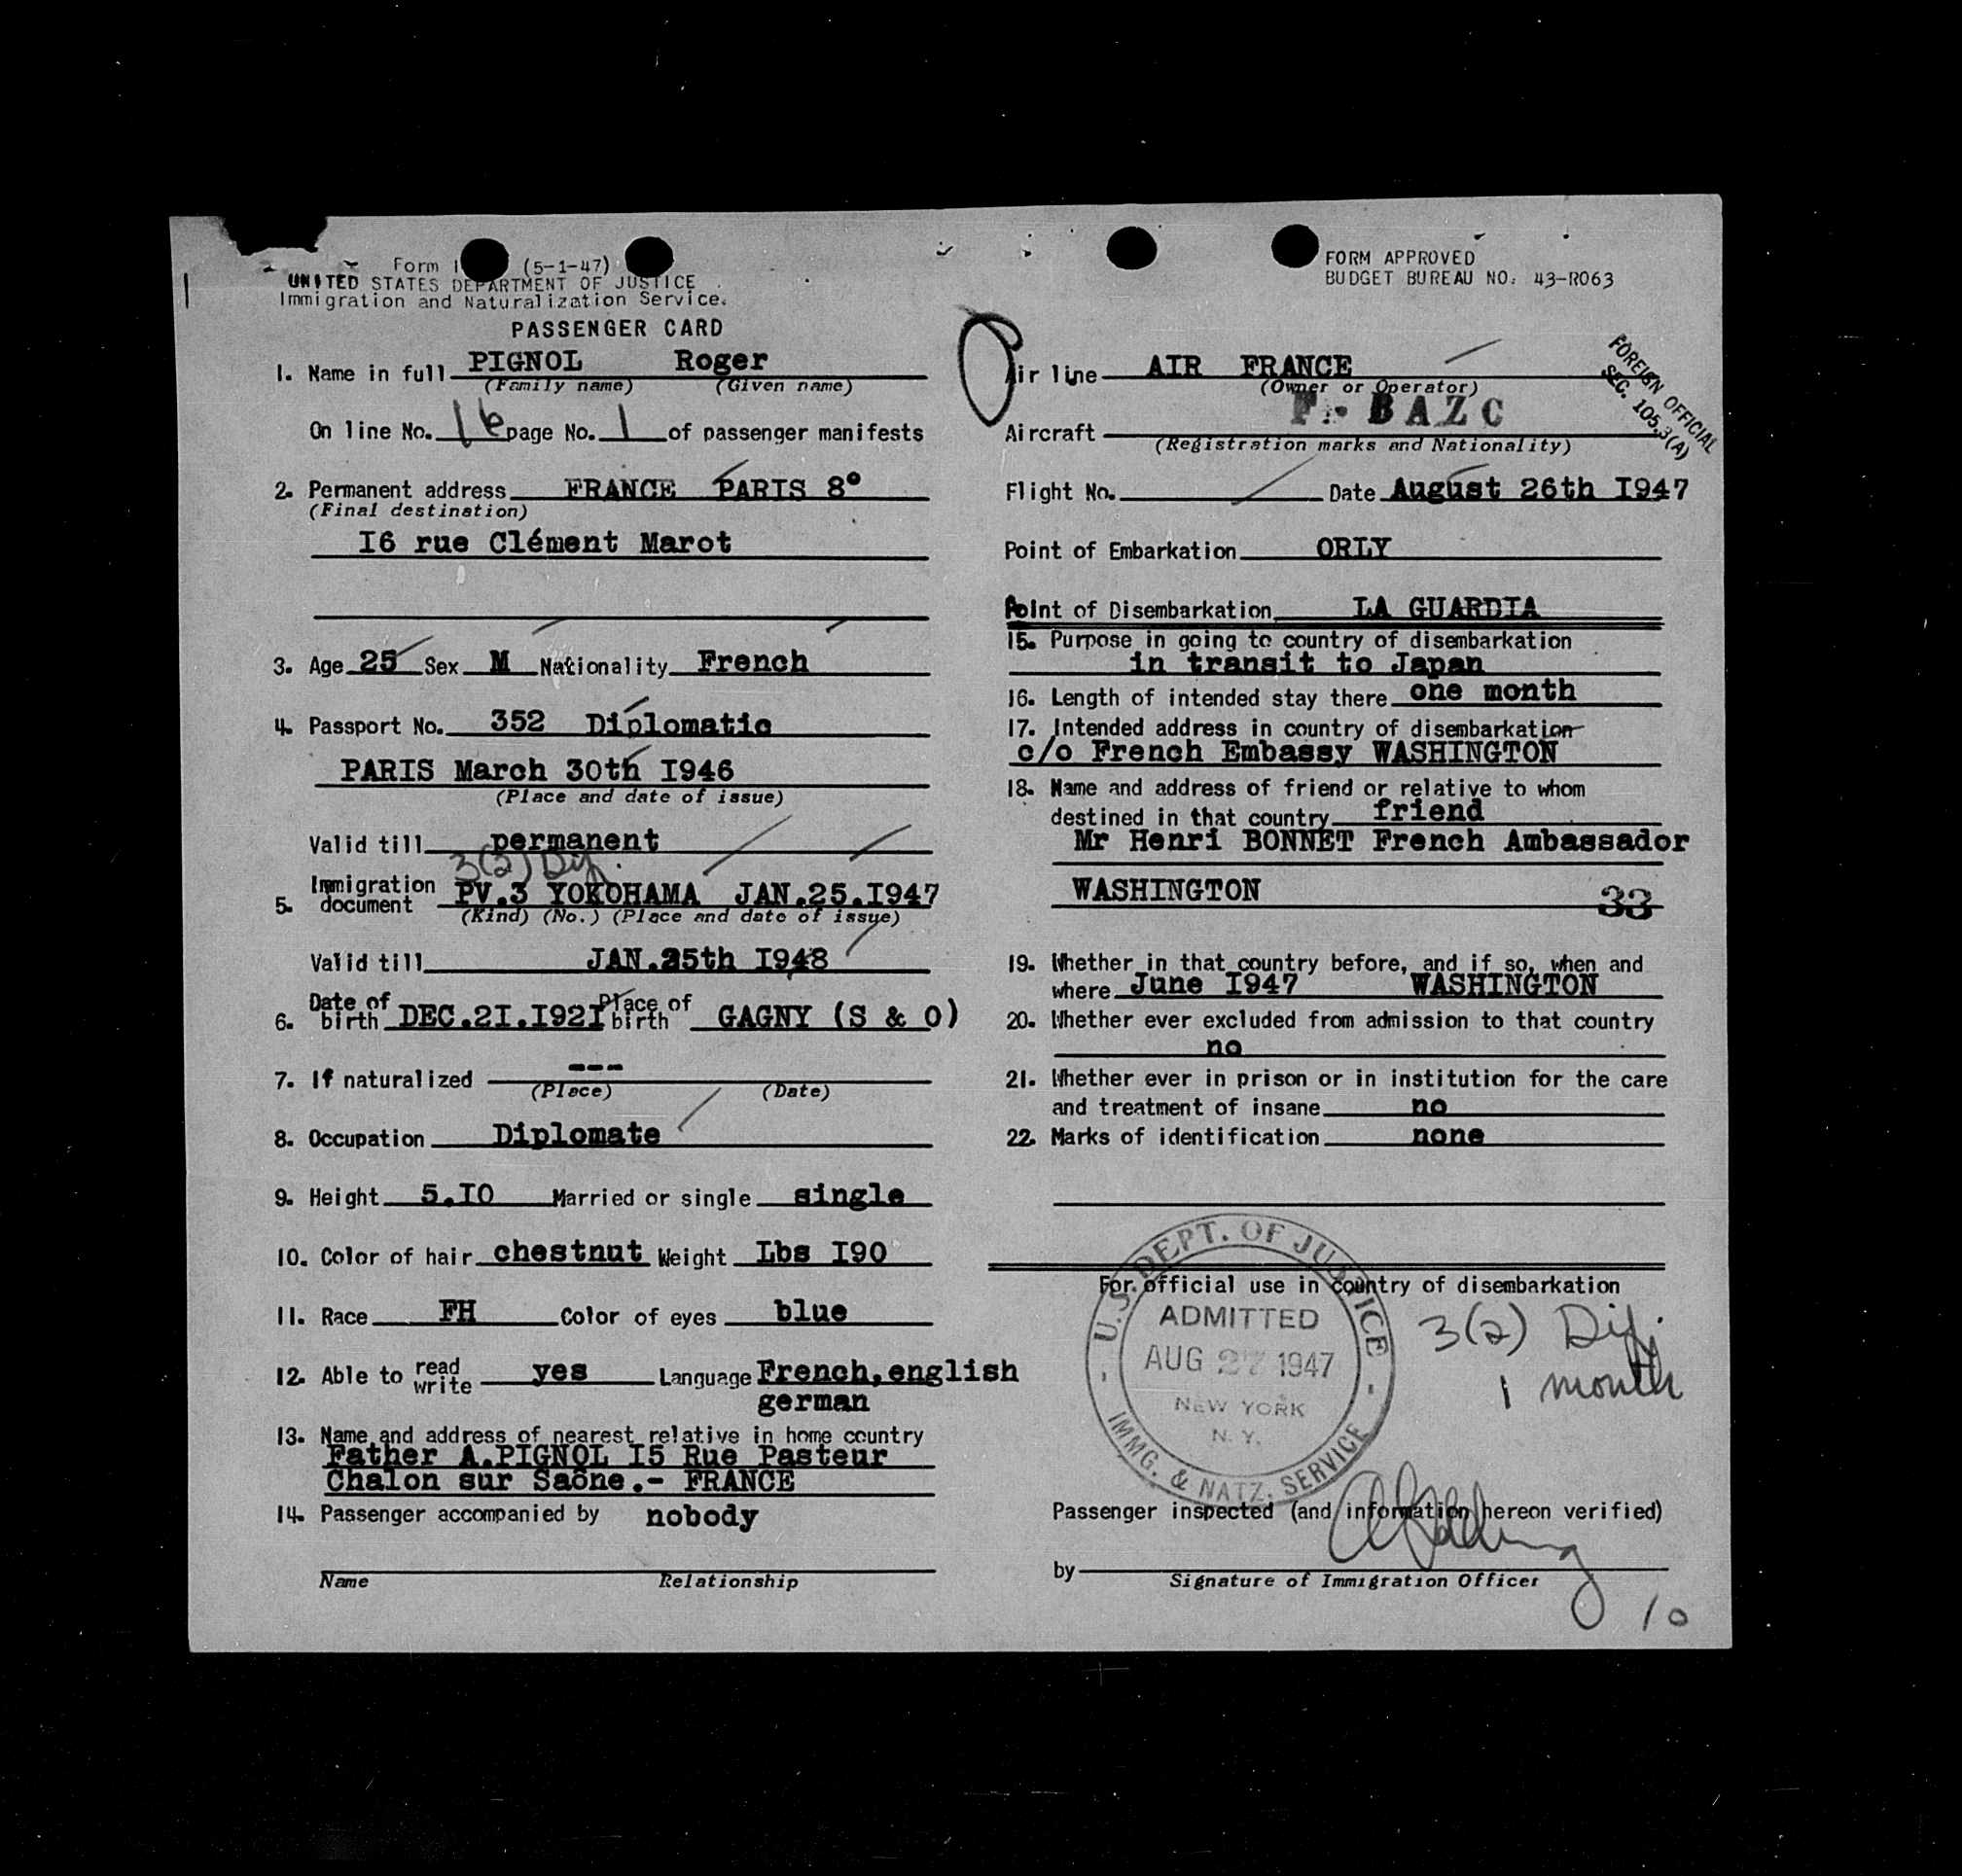 Form I (5-1-47)
UNITED STATES DEPARTMENT OF JUSTICE
Immigration and Naturalization Service.
PASSENGER CARD
1. Name in full PIGNOL Roger
(Family name) (Given name)
On line No. 16 page No. 1 of passenger manifests
2. Permanent address FRANCE PARIS 8°
(Final destination)
I6 rue Clément Marot
3. Age 25 Sex M Nationality French
4. Passport No. 352 Diplomatic
PARIS March 30th I946
(Place and date of issue)
Valid till permanent
3(2) Dif.
5. Immigration document PV.3 YOKOHAMA JAN.25.I947
(Kind) (No.) (Place and date of issue)
Valid till JAN.25th I948
6. Date of birth DEC.2I.I92I Place of birth GAGNY (S & O)
7. If naturalized ---
(Place) (Date)
8. Occupation Diplomate
9. Height 5.I0 Married or single single
10. Color of hair chestnut Weight Lbs I90
11. Race FH Color of eyes blue
12. Able to read write yes Language French,english
german
13. Name and address of nearest relative in home country
Father A.PIGNOL I5 Rue Pasteur
Chalon sur Saône.- FRANCE
14. Passenger accompanied by nobody
Name Relationship
FORM APPROVED
BUDGET BUREAU NO. 43-R063
FOREIGN OFFICIAL
SEC. 105.3(A)
Air line AIR FRANCE
(Owner or Operator)
F. BAZC
Aircraft
(Registration marks and Nationality)
Flight No. Date August 26th I947
Point of Embarkation ORLY
Point of Disembarkation LA GUARDIA
15. Purpose in going to country of disembarkation
in transit to Japan
16. Length of intended stay there one month
17. Intended address in country of disembarkation
c/o French Embassy WASHINGTON
18. Name and address of friend or relative to whom
destined in that country friend
Mr Henri BONNET French Ambassador
WASHINGTON 33
19. Whether in that country before, and if so, when and
where June I947 WASHINGTON
20. Whether ever excluded from admission to that country
no
21. Whether ever in prison or in institution for the care
and treatment of insane no
22. Marks of identification none
For official use in country of disembarkation
U.S. DEPT. OF JUSTICE
ADMITTED
AUG 27 1947
NEW YORK
N. Y.
IMMG. & NATZ. SERVICE
3(2) Dif.
1 month
Passenger inspected (and information hereon verified)
by
Signature of Immigration Officer
10